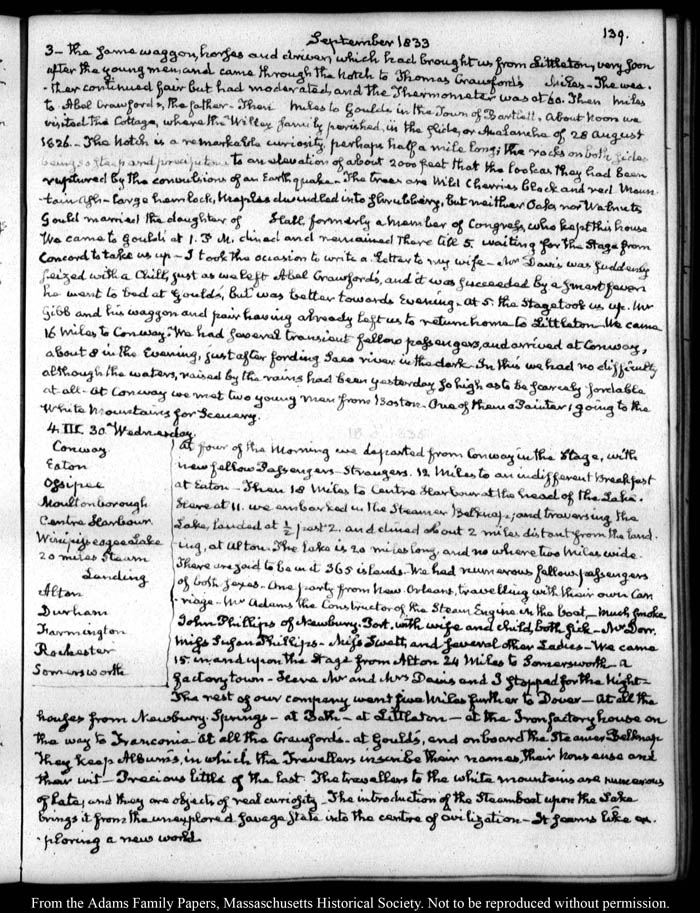 139.
September 1833
3— the same waggon, horses and driver, which had brought us from Littleton, very soon
after the young men, and came through the Notch to Thomas Crawford's miles— The wea-
-ther continued fair but had moderated, and the Thermometer was at 60. Then miles
to Abel Crawford's, the father— Then miles to Goulds in the Town of Bartlett. About Noon we
visited the Cottage, where the Willey family perished, in the slide, or Avalanche of 28 August
1826.— The Notch is a remarkable curiosity perhaps half a mile long; the rocks on both sides
being so steep and precipitous to an elevation of about 2000 feet that the look as they had been
ruptured by the convulsions of an Earthquake— The trees are Wild Cherries black and red Moun-
tain Ash— large hemlock, Maples dwindled into shrubbery, but neither Oaks nor Walnuts
Gould married the daughter of Hall formerly a member of Congress, who kept this house
We came to Gould's at 1. P M. dined and remained there till 5. waiting for the Stage from
Concord to take us up— I took the occasion to write a Letter to my wife— Mr Davis was suddenly
seized with a Chill, just as we left Abel Crawford's, and it was succeeded by a smart fever
he went to bed at Gould's, but was better towards Evening— At 5. the Stage took us up. Mr
Gibb and his waggon and pair having already left us to return home to Littleton— We came
16 Miles to Conway. We had several transient fellow passengers, and arrived at Conway,
about 8 in the Evening, just after fording Saco river in the dark. In this we had no difficulty
although the waters, raised by the rains had been yesterday so high, as to be scarcely fordable
at all— At Conway we met two young men from Boston— One of them a Painter, going to the
White Mountains for Scenery.
4. III. 30. Wednesday.
Conway
Eaton
Ossipee
Moultonborough
Centre Harbour
Winipiseogee Lake
20 miles Steam
Landing
Alton
Durham
Farmington
Rochester
Somersworth
At four of the Morning we departed from Conway in the Stage, with
new fellow Passengers— Strangers. 12 Miles to an indifferent Breakfast
at Eaton— Then 18 Miles to Centre Harbour at the head of the Lake.
Here at 11. we embarked in the Steamer Belknap; and traversing the
Lake, landed at ½ past 2. and dined about 2 miles distant from the land-
ing, at Alton. The Lake is 20 miles long, and no where two Miles wide
There are said to be in it 365 islands— We had numerous fellow passengers
of both sexes— One party from New Orleans, travelling with their own Car-
-riage— Mr Adams the Constructor of the Steam Engine in the boat— much smoke
John Phillips of Newbury-Port, with wife and child, both sick— Mr Dorr,
Miss Susan Phillips— Miss Swett, and several other Ladies— We came
15. in and upon the Stage from Alton 24 Miles to Somersworth— a
factory town— Here Mr and Mrs Davis and I stopped for the Night—
The rest of our company went five Miles further to Dover— At all the
houses from Newbury Springs— at Bath— at Littleton— at the Iron factory house on
the way to Franconia— At all the Crawfords— at Gould's, and on board the Steamer Belknap
they keep Albums, in which the Travellers inscribe their names, their nonsense and
their wit— Precious little of the last. The travellers to the white mountains are numerous
of late, and they are objects of real curiosity— The introduction of the Steamboat upon the Lake
brings it from the unexplored savage state into the centre of civilization— It seems like ex-
-ploring a new world.
From the Adams Family Papers, Massachusetts Historical Society. Not to be reproduced without permission.